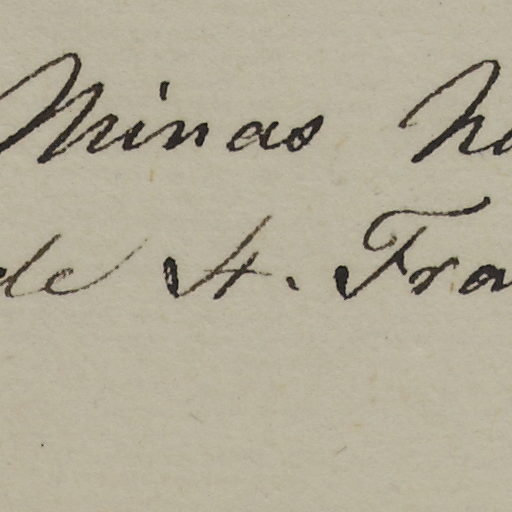 Minas No
de S. Fra